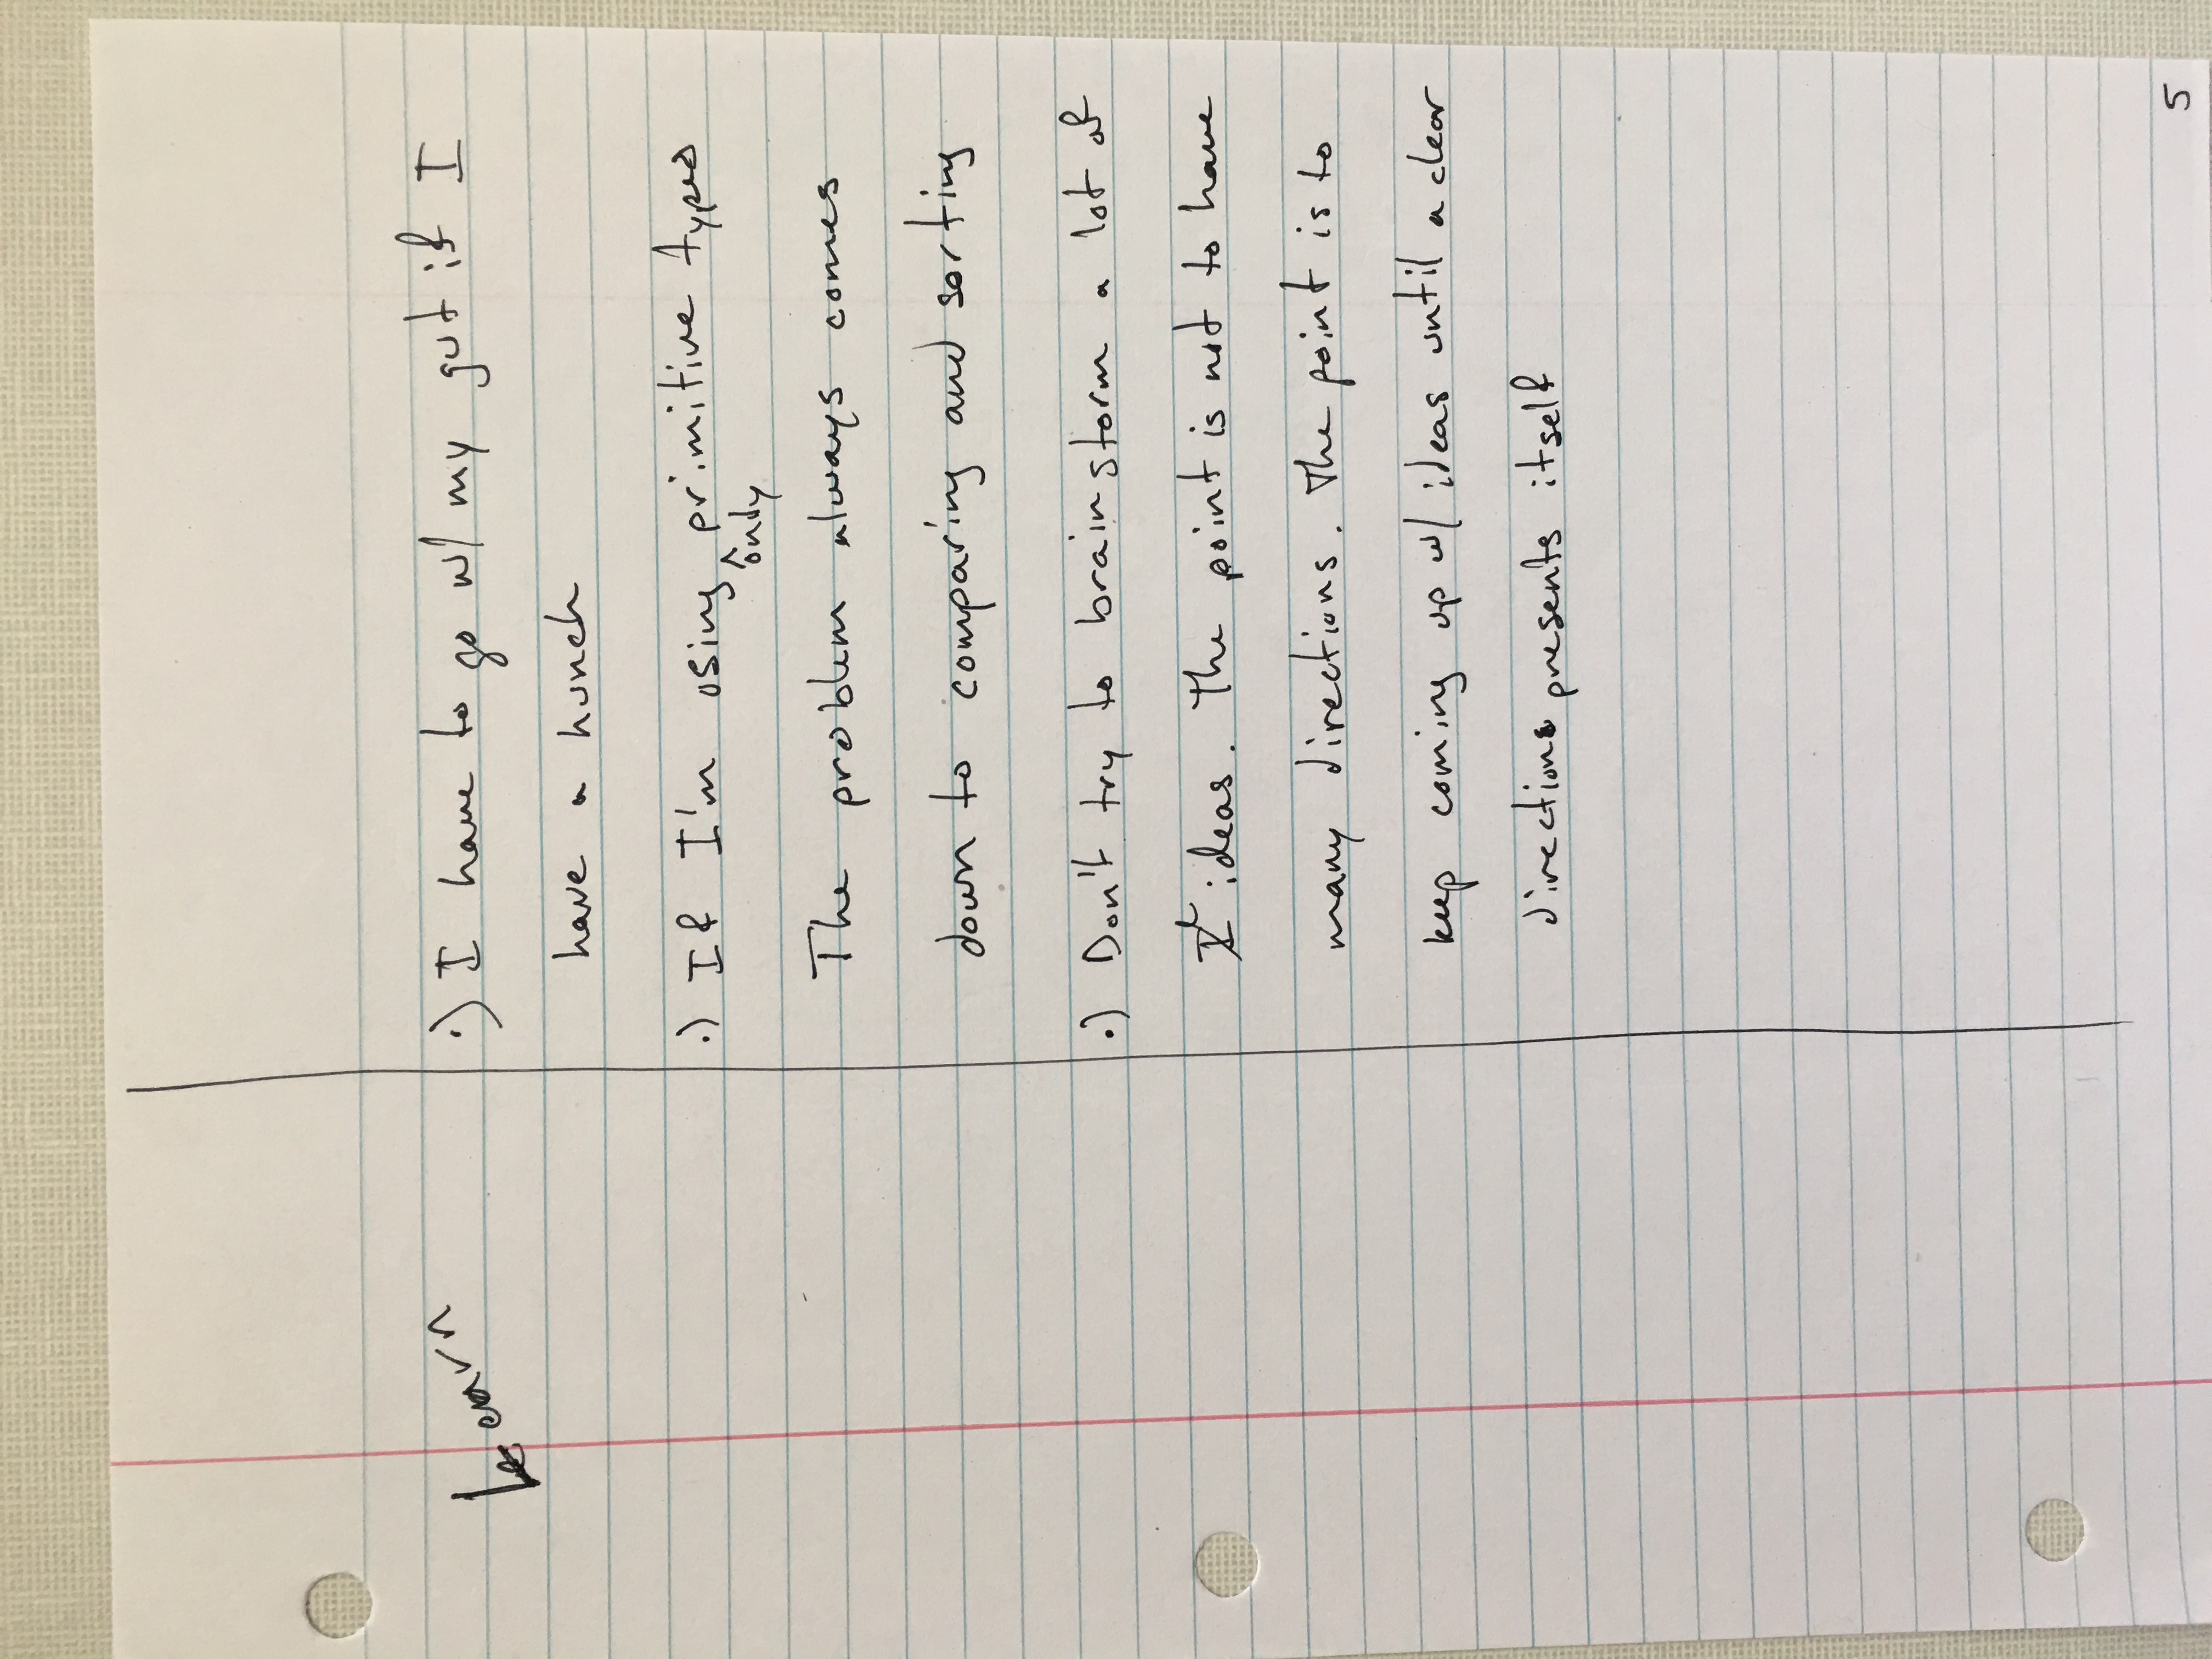 Learn
.) I have to go w/ my gut if I
have a hunch
.) If I'm using primitive types
^only
The problem always comes
down to comparing and sorting
.) Don't try to brainstorm a lot of
ideas. The point is not to have
many directions. The point is to
keep coming up w/ ideas until a clear
direction presents itself
5